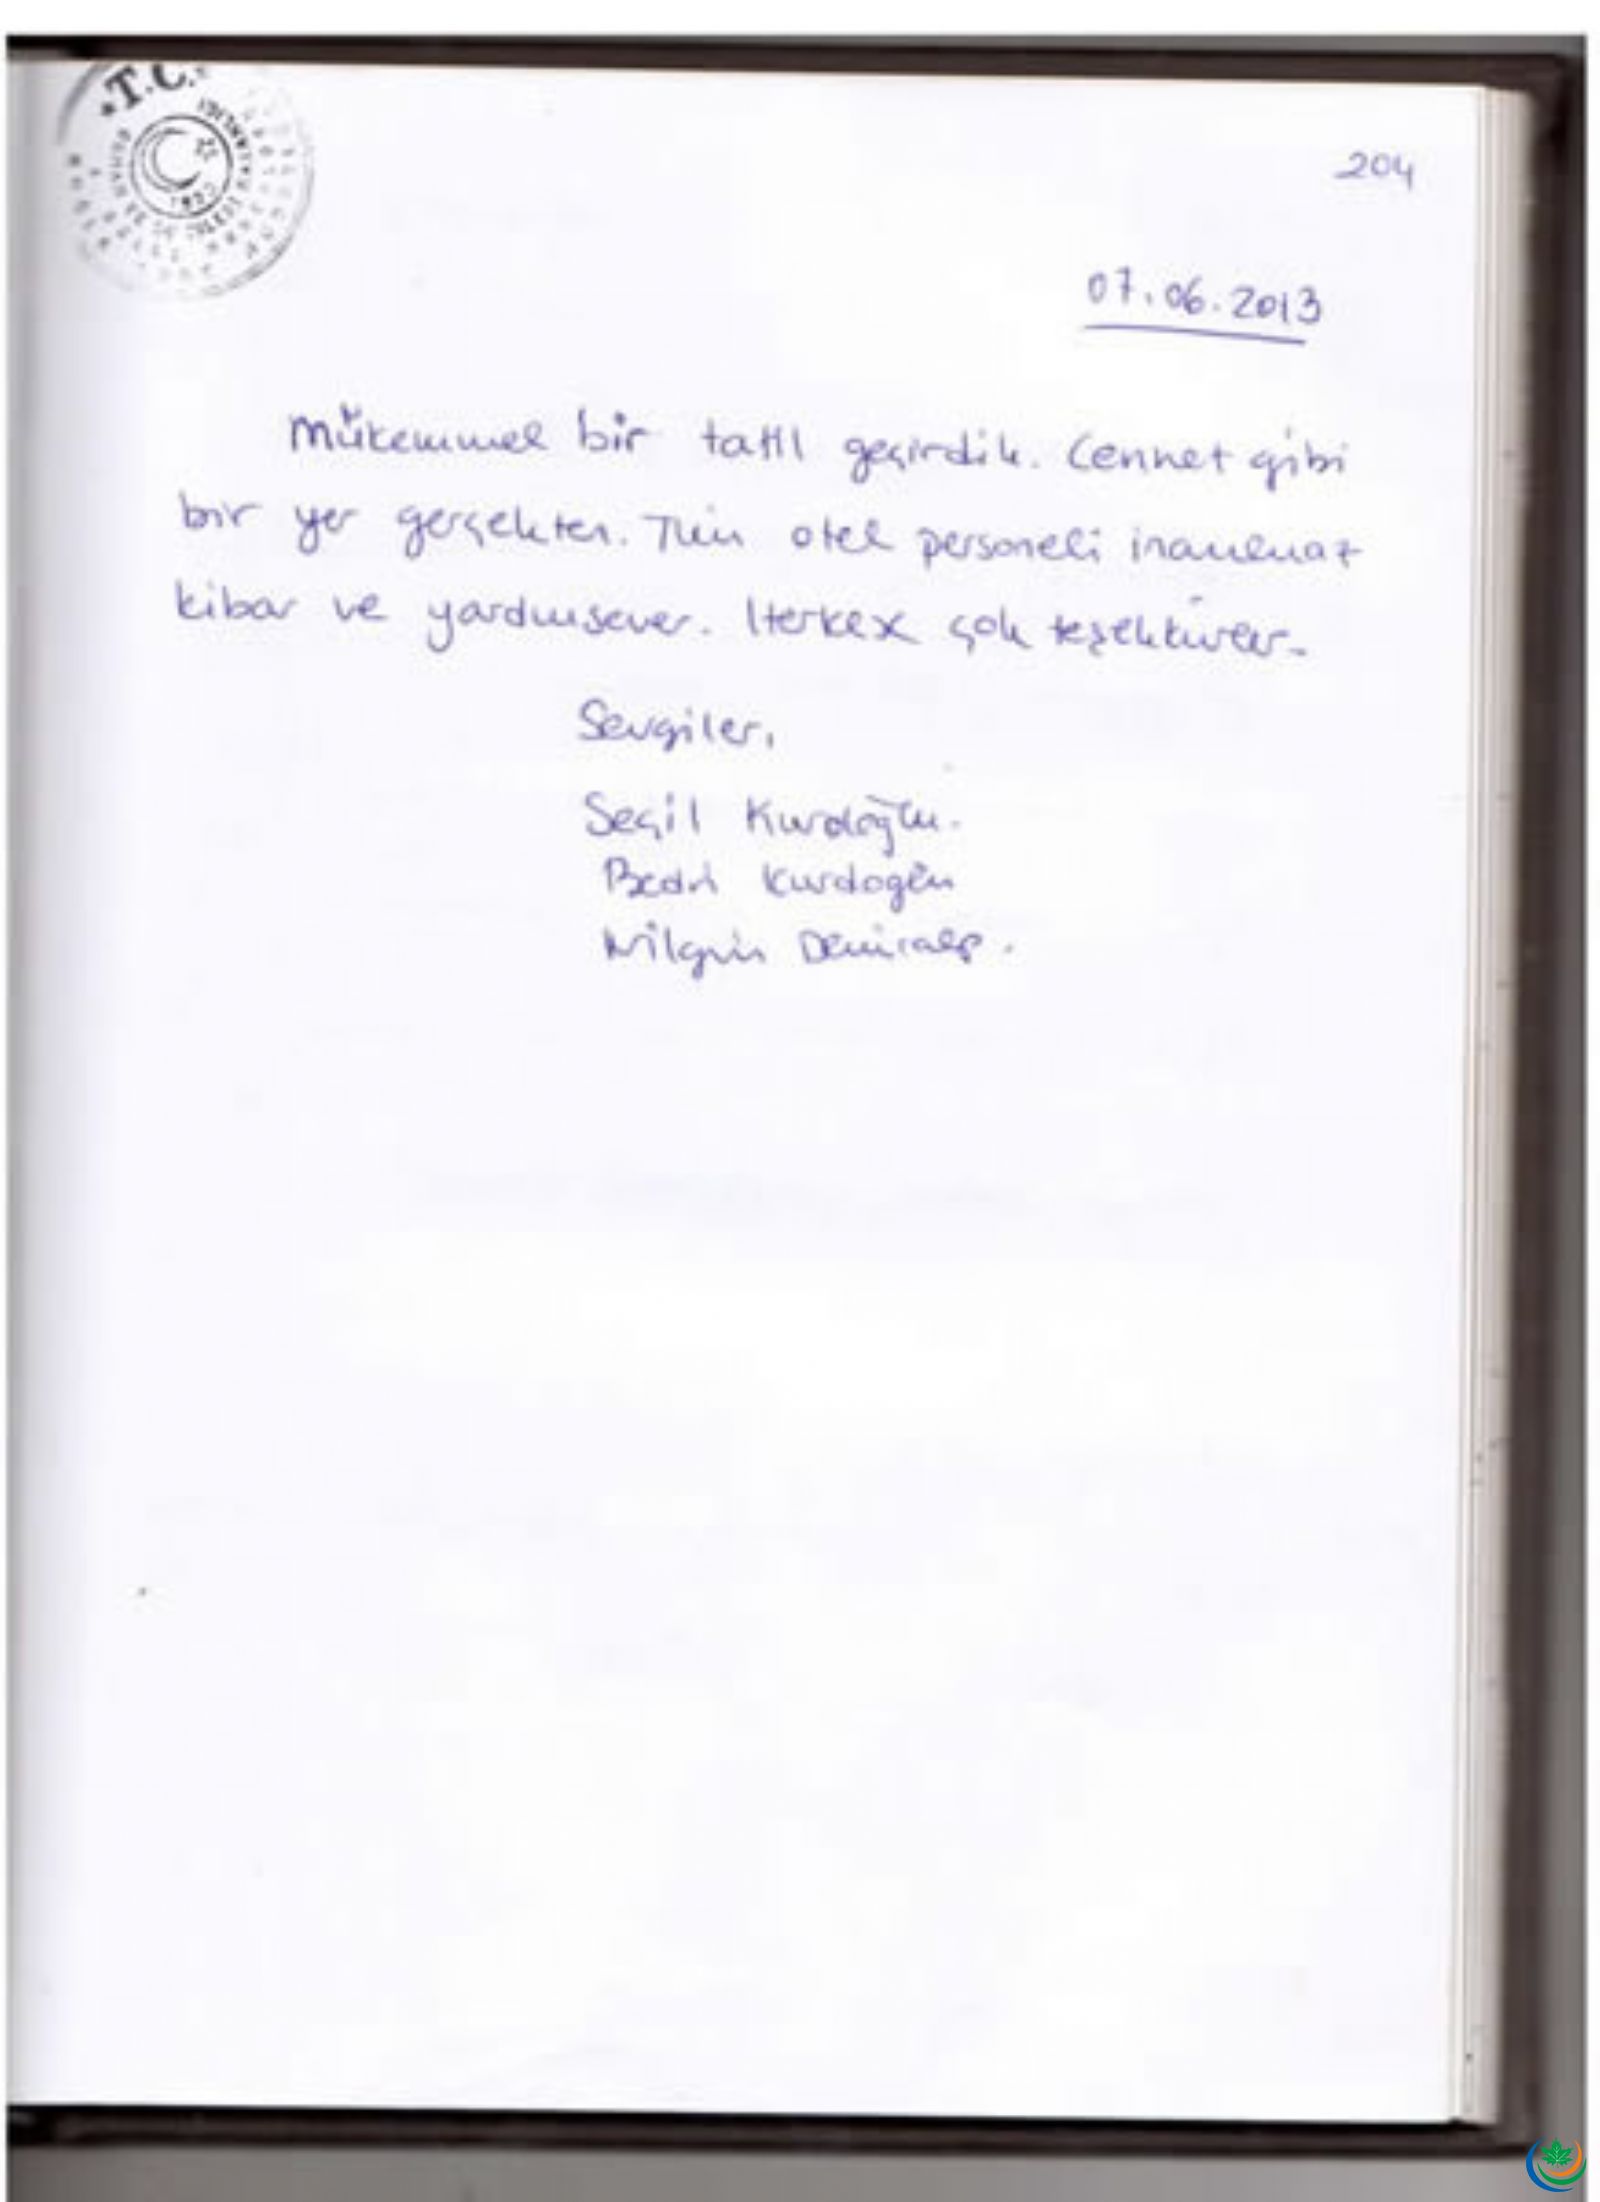 T.C.
204
07.06.2013
Mükemmel bir tatil geçirdik. Cennet gibi
bir yer gerçekten. Tüm otel personeli inanılmaz
kibar ve yardımsever. Herkese çok teşekkürler.
Sevgiler,
Seçil Kurdoğlu.
Bedri Kurdoğlu
Nilgün Demiralp.